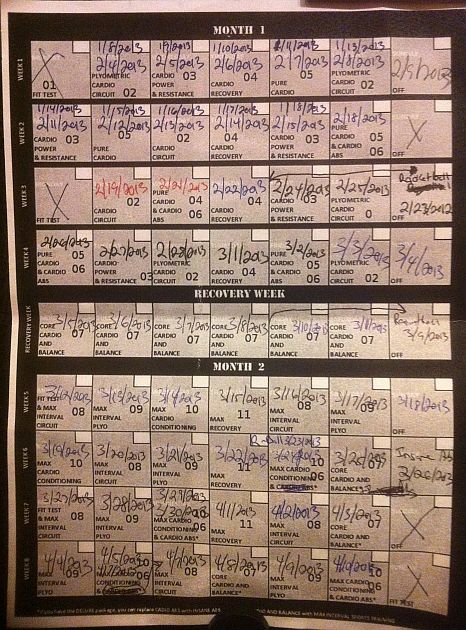 MONTH 1
WEEK 1
01
FIT TEST
1/8/2013
2/4/2013
PLYOMETRIC
CARDIO
CIRCUIT 02
1/9/2013
2/5/2013
CARDIO 03
POWER
& RESISTANCE
1/10/2013
2/6/2013
04
CARDIO
RECOVERY
1/11/2013
2/7/2013
PURE 05
CARDIO
2/8/2013
PLYOMETRIC
CARDIO
CIRCUIT 02
OFF
WEEK 2
1/14/2013
2/11/2013
CARDIO 03
POWER
& RESISTANCE
1/15/2013
2/12/2013
05
PURE
CARDIO
1/16/2013
2/13/2013
02
CARDIO
CIRCUIT
1/17/2013
2/14/2013
04
CARDIO
RECOVERY
1/18/2013
2/15/2013
CARDIO 03
POWER
& RESISTANCE
2/18/2013
PURE 05
CARDIO
& CARDIO 06
ABS
X
OFF
WEEK 3
X
FIT TEST
2/19/2013
02
CARDIO
CIRCUIT
2/21/2013
PURE 04
CARDIO
& CARDIO 06
ABS
2/22/2013
04
CARDIO
RECOVERY
2/24/2013
CARDIO 03
POWER
& RESISTANCE
2/25/2013
PLYOMETRIC
CARDIO 0
CIRCUIT
2/23/2012
OFF
WEEK 4
2/26/2013
PURE 05
CARDIO
& CARDIO 06
ABS
2/27/2013
CARDIO
POWER
& RESISTANCE 03
2/28/2013
PLYOMETRIC
CARDIO
CIRCUIT 02
3/1/2013
CARDIO 04
RECOVERY
3/2/2013
PURE 05
CARDIO
& CARDIO 06
ABS
3/3/2013
PLYOMETRIC
CARDIO
CIRCUIT 02
3/4/2013
OFF
RECOVERY WEEK
RECOVERY WEEK
3/5/2013
CORE 07
CARDIO
AND
BALANCE
3/6/2013
CORE 07
CARDIO
AND
BALANCE
3/7/2013
CORE 07
CARDIO
AND
BALANCE
3/8/2013
CORE 07
CARDIO
AND
BALANCE
3/10/2013
CORE 07
CARDIO
AND
BALANCE
CORE 07
CARDIO
AND
BALANCE
3/9/2013
OFF
MONTH 2
WEEK 5
3/12/2013
FIT TEST
& MAX 08
INTERVAL
CIRCUIT
3/13/2013
MAX 09
INTERVAL
PLYO
3/14/2013
MAX 10
CARDIO
CONDITIONING
3/15/2013
MAX 11
RECOVERY
MAX 08
INTERVAL
CIRCUIT
3/17/2013
MAX 09
INTERVAL
PLYO
3/18/2013
OFF
WEEK 6
3/19/2013
MAX 10
CARDIO
CONDITIONING
3/20/2013
MAX 08
INTERVAL
CIRCUIT
3/21/2013
MAX 09
INTERVAL
PLYO
3/22/2013
MAX 11
RECOVERY
3/23/2013
10
MAX CARDIO 06
CONDITIONING
3/25/2013
CORE 07
CARDIO AND
BALANCE*
OFF
WEEK 7
3/27/2013
FIT TEST
& MAX 08
INTERVAL
CIRCUIT
3/28/2013
MAX 09
INTERVAL
PLYO
3/30/2013
MAX CARDIO 06
CONDITIONING
& CARDIO ABS*
4/1/2013
MAX 11
RECOVERY
4/2/2013
MAX 08
INTERVAL
CIRCUIT
4/3/2013
CORE 07
CARDIO AND
BALANCE*
X
OFF
WEEK 8
4/4/2013
MAX 09
INTERVAL
PLYO
4/5/2013
MAX CARDIO 06
CONDITIONING
4/7/2013
MAX 08
INTERVAL
CIRCUIT
4/8/2013
CORE 07
CARDIO AND
BALANCE*
4/9/2013
MAX 09
INTERVAL
PLYO
10
MAX CARDIO 06
CONDITIONING
& CARDIO ABS*
X
OFF
*If you have the DELUXE package, you can replace CARDIO ABS with INSANE ABS
AND BALANCE with MAX INTERVAL SPORTS TRAINING